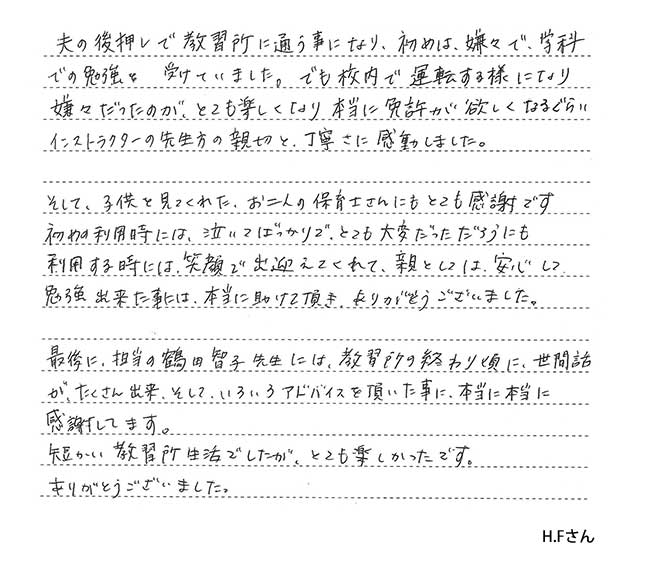 夫の後押しで教習所に通う事になり、初めは、嫌々で、学科
での勉強を 受けていました。でも校内で運転する様になり
嫌々だったのが、とても楽しくなり本当に免許が欲しくなるぐらい
インストラクターの先生方の親切と、丁寧さに感動しました。
そして、子供を見てくれた、お二人の保育士さんにもとても感謝です
初めの利用時には、泣いてばっかりで、とても大変だっただろうにも
利用する時には、笑顔で出迎えてくれて、親としては、安心して
勉強出来た事には、本当に助けて頂き、ありがとうございました。
最後に、担当の鶴田智子先生には、教習所の終わり頃に、世間話
が、たくさん出来、そして、いろいろアドバイスを頂いた事に、本当に本当に
感謝してます。
短かい教習所生活でしたが、とても楽しかったです。
ありがとうございました。
H.Fさん